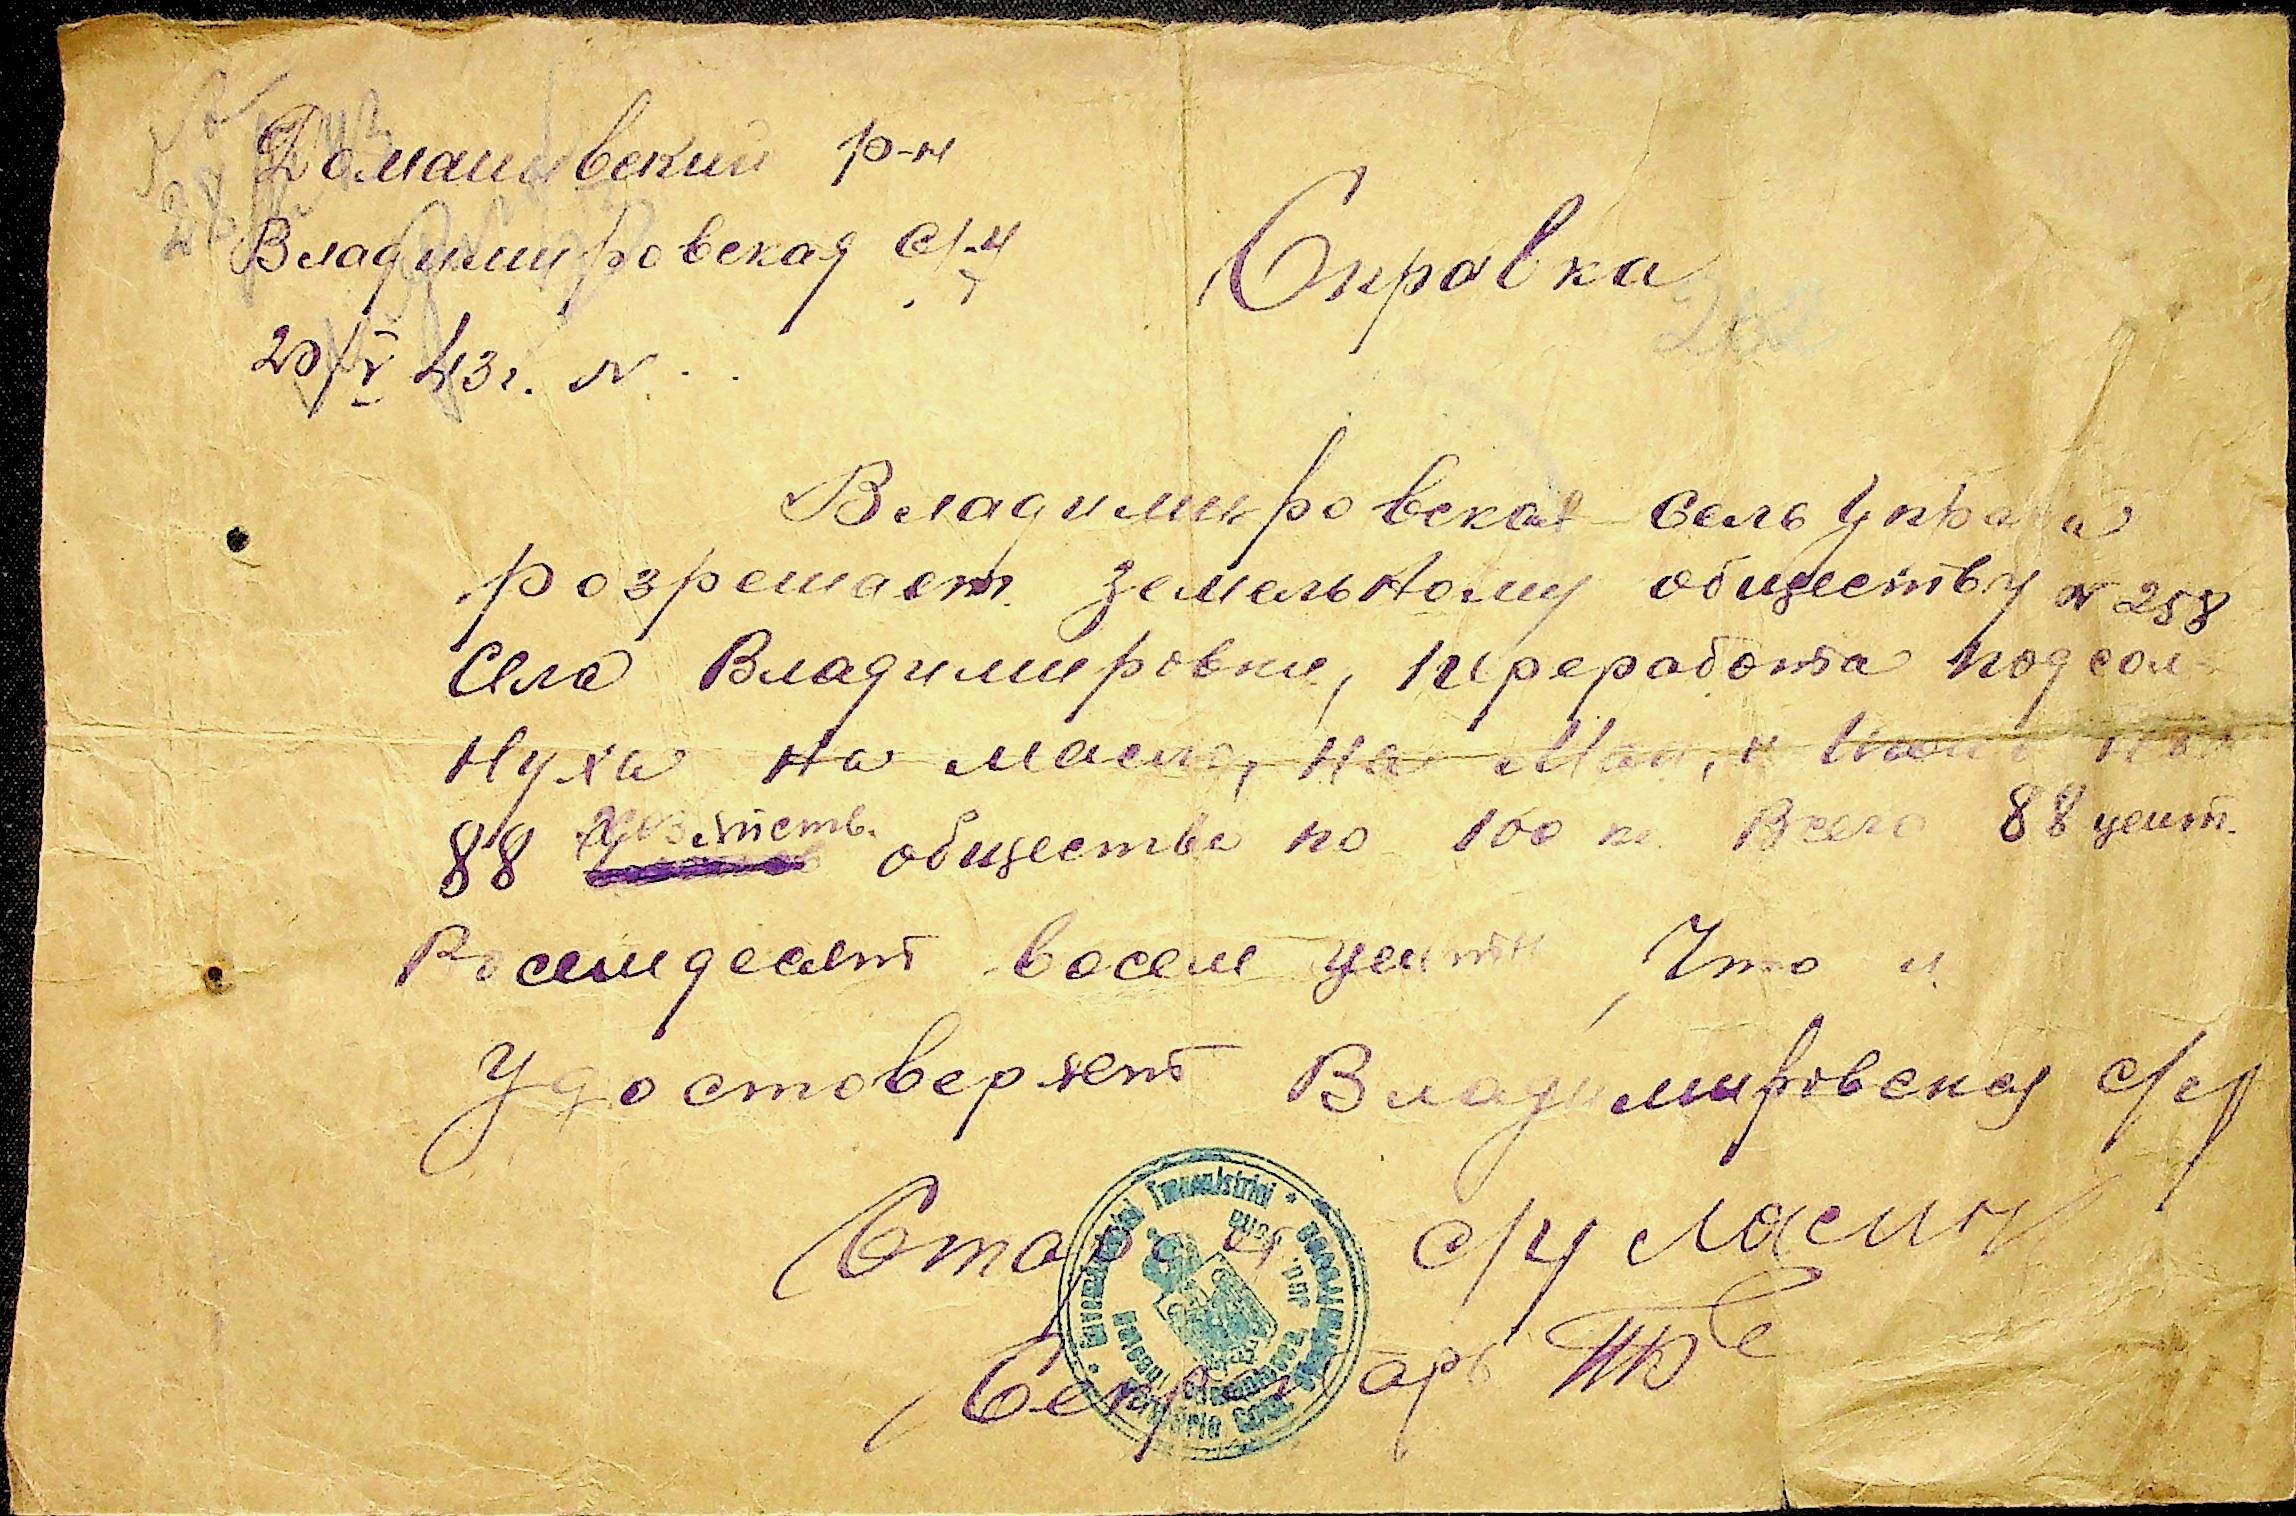 Домановский р-н
Владимировская с/-у
20/V 43 г. N . .
Справка
Владимировская сель управа
розрешает земельному обществу N 258
села Владимировки, переработа подсол-
нуха на масло, на Май, и Июнь
88 хозяйств. общества по 100 кг. Всего 88 цент.
Восемдесят восем центн, Что и
удостоверяет Владимировская с/у
Староста с/у
Секретарь